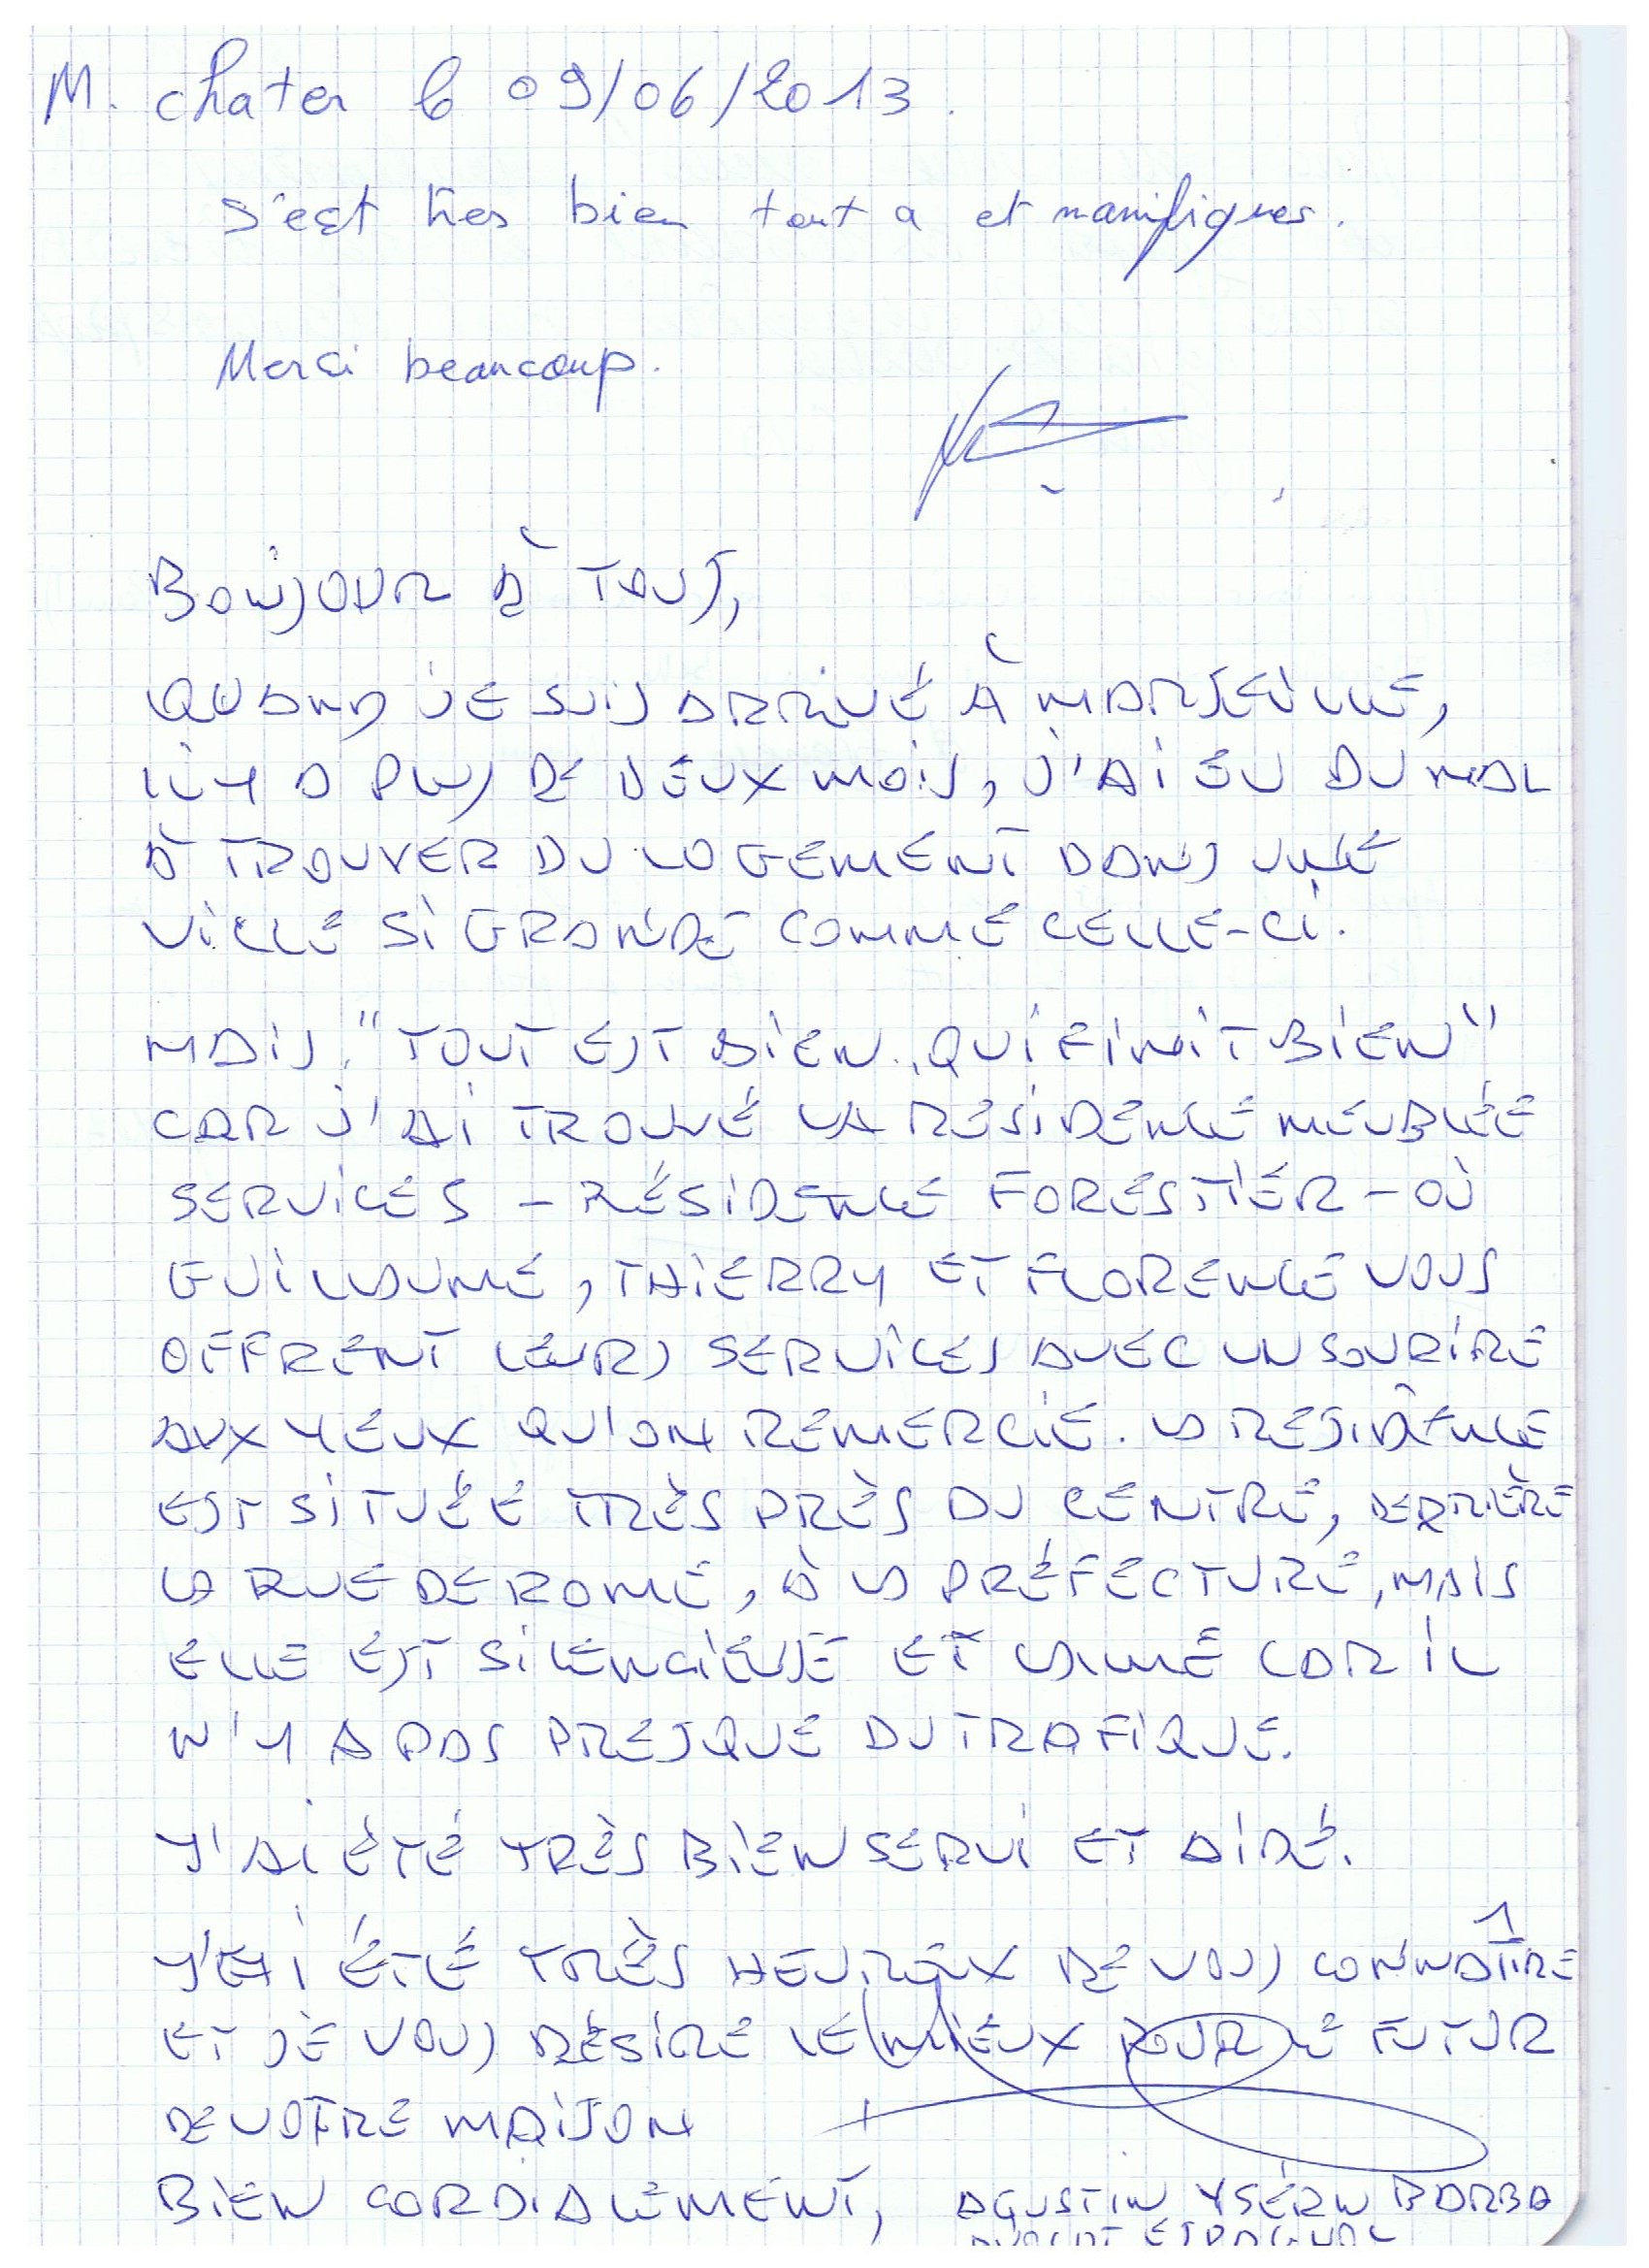 M. chater le 09/06/2013.
s'est très bien tout a et manifiques.
Merci beaucoup.
BONJOUR À TOUS,
QUAND JE SUIS ARRIVÉ À MARSEILLE,
IL Y A PLUS DE DEUX MOIS, J'AI EU DU MAL
À TROUVER DU LOGEMENT DANS UNE
VILLE SI GRANDE COMME CELLE-CI.
MAIS, "TOUT EST BIEN QUI FINIT BIEN"
CAR J'AI TROUVÉ LA RESIDENCE MEUBLÉE
SERVICES - RÉSIDENCE FORESTIER - OÙ
GUILLAUME, THIERRY ET FLORENCE VOUS
OFFRENT LEURS SERVICES AVEC UN SOURIRE
AUX YEUX QU'ON REMERCIE. LA RESIDENCE
EST SITUÉE TRÈS PRÈS DU CENTRE, DERRIÈRE
LA RUE DE ROME, À LA PRÉFECTURE, MAIS
ELLE EST SILENCIEUSE ET CALME CAR IL
N'Y A PAS PRESQUE DU TRAFIQUE.
Y'AI ÉTÉ TRÈS BIEN SERVI ET AIDÉ.
Y'AI ÉTÉ TRÈS HEUREUX DE VOUS CONNAÎTRE
ET JE VOUS DÉSIRE LE MIEUX POUR LE FUTUR
DE VOTRE MAISON
BIEN CORDIALEMENT, AGUSTIN YSÉRN BARBA
AVOCAT ESPAGNOL